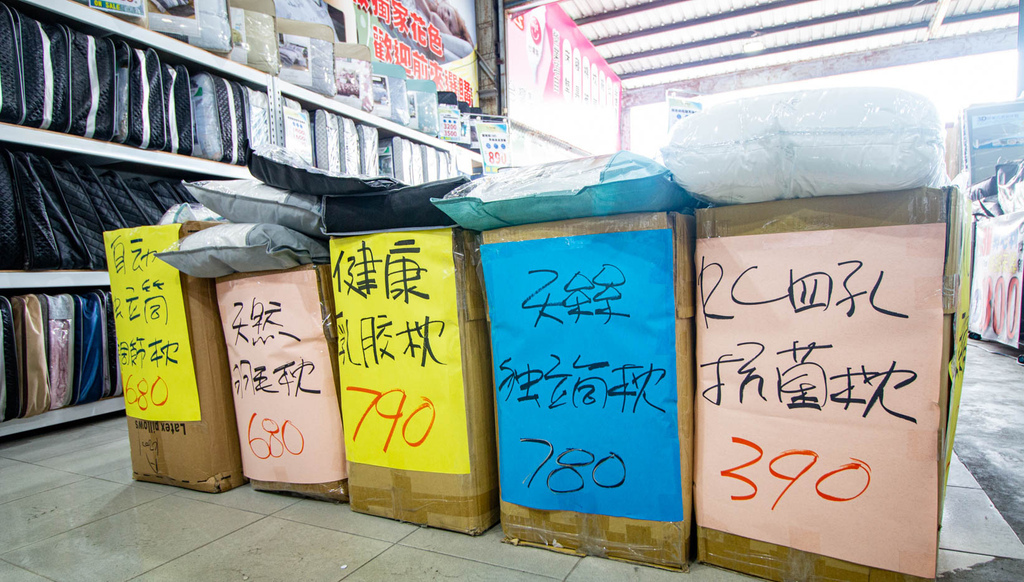 獨家花色
歡迎前
890
自动
獨立筒
調節枕
680
Latex pillows
天然
羽毛枕
680
健康
乳胶枕
790
天絲
独立筒枕
780
RC四孔
抗菌枕
390